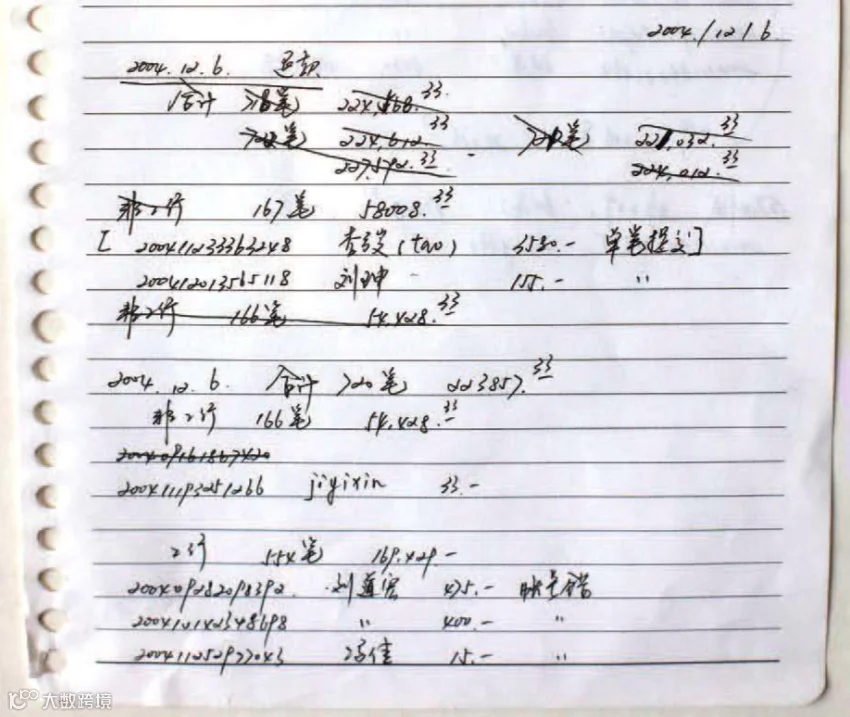 2004/12/6.
2004.12.6. 退款
合计 718笔 224,168.33
722笔 224,612.33 721笔 221,032.33
227,592.33 224,012.33
非工行 167笔 58008.33
[ 200411233363248 (tao) 3580.- 单笔提交]
2004120135651 18 刘坤 15.- "
非工行 166笔 54,428.33
2004.12.6. 合计 720笔 223857.33
非工行 166笔 54,428.33
200409161867420
2004111193251266 jiyixin 33.-
工行 554笔 169,429.-
200409282098392 刘道宏 475.- 账号错
200410142348698 " 400.- "
200411252977043 冯佳 15.- "
大数跨境